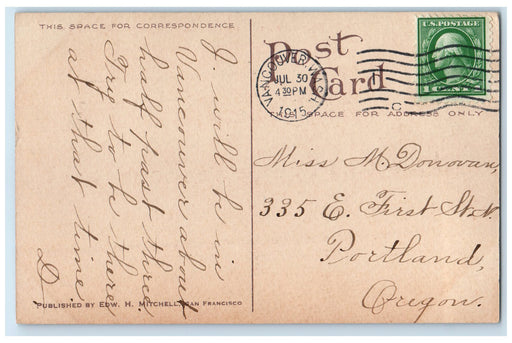 THIS SPACE FOR CORRESPONDENCE
I will be in
Vancouver about
half past three.
Try to be there
at that time.
D.
PUBLISHED BY EDW. H. MITCHELL, SAN FRANCISCO
Post
Card
THIS SPACE FOR ADDRESS ONLY
VANCOUVER, WASH.
JUL 30
4 30 PM
1915
C
U.S. POSTAGE
1 CENT 1
Miss M. Donovan,
335 E. First St. N.
Portland,
Oregon.